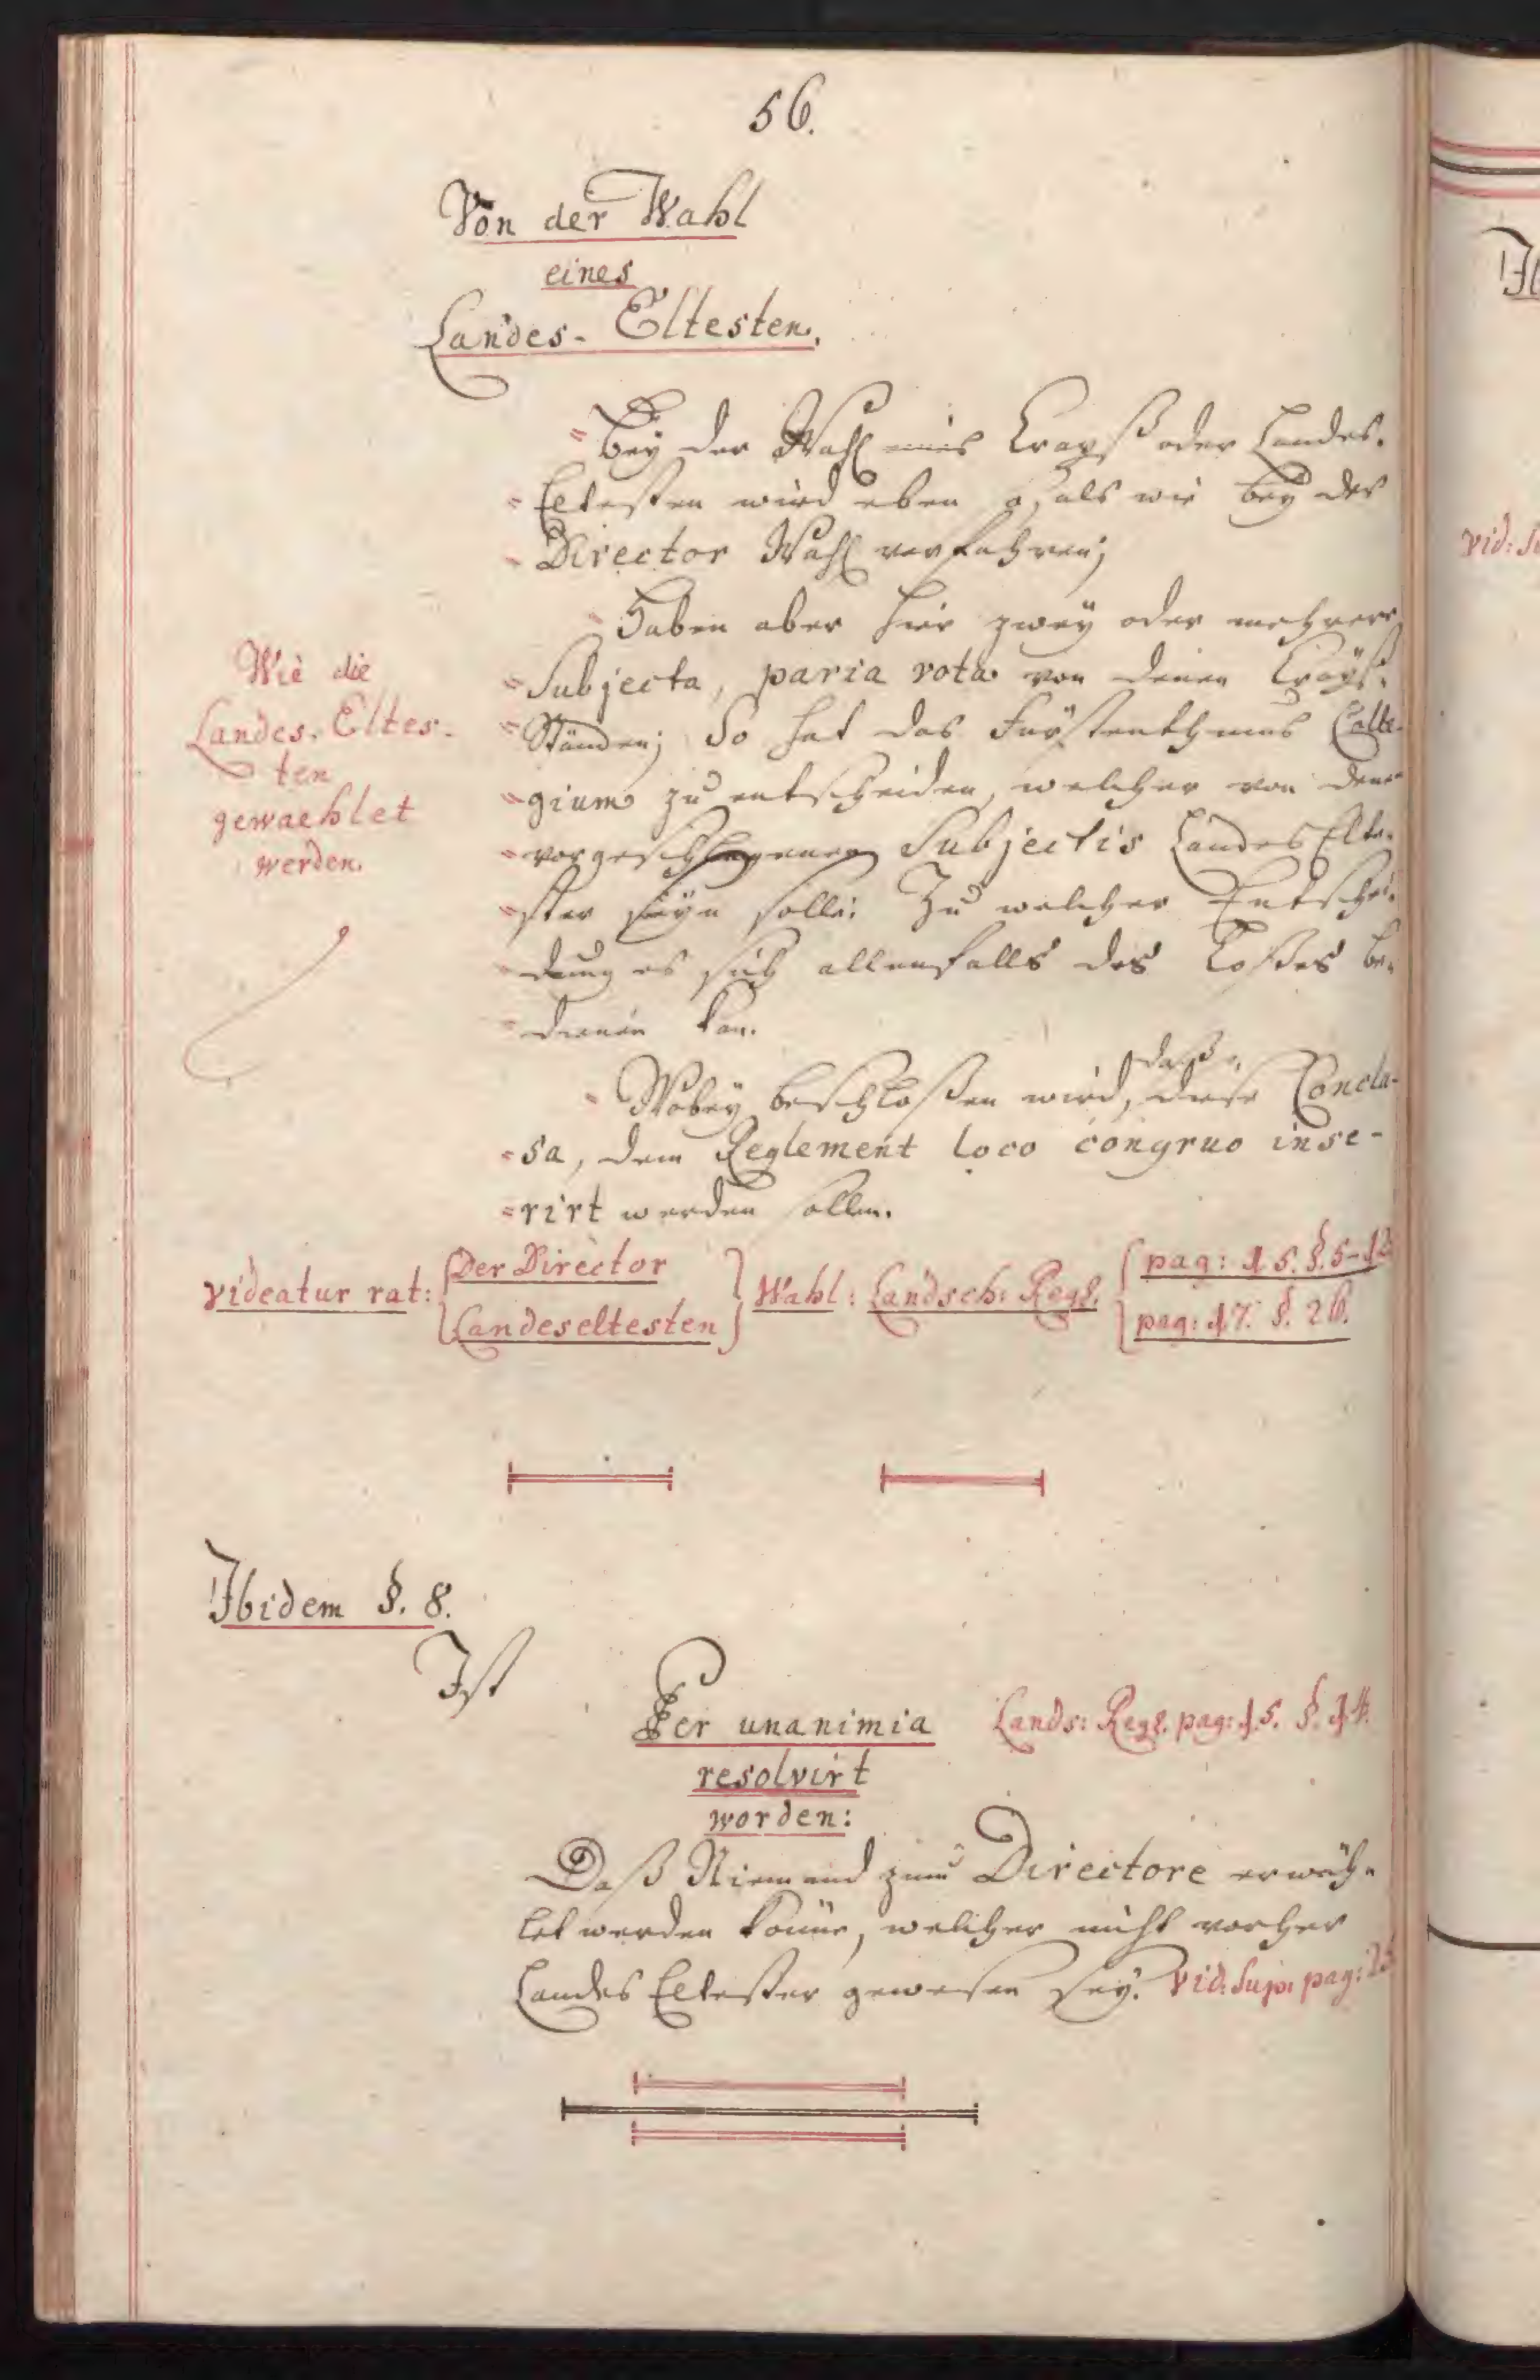 56.
Von der Wahl
eines
Landes-Eltesten.
"Bey der Wahl eines Crayß oder Landes-
"Eltesten wird eben so, als wie bey der
"Director Wahl verfahren;
"Haben aber hier zwey oder mehrere
"Subjecta, paria vota von denen Crayß-
"Ständen; So hat das Fürstenthums Colle-
"gium zu entscheiden, welcher von denen
"vorgeschlagenen Subjectis Landes Elte-
"ster seyn solle: Zu welcher Entschei-
"dung es sich allenfalls des Loßes be-
"dienen kan.
"Wobey beschloßen wird, daß diese Conclu-
"sa, dem Reglement loco congruo inse-
"rirt werden sollen.
Wie die
Landes-Eltes-
ten
gewaehlet
werden.
Videatur rat: {Der Director
Landeseltesten} Wahl: Landsch: Regl. {pag: 15. §. 5-12
pag: 17. §. 26.
Ibidem §. 8.
Ist
Per unanimia Lands: Regl. pag: 15. §. 14.
resolvirt
worden:
Daß Niemand zum Directore erwäh-
let werden könne, welcher nicht vorher
Landes Eltester gewesen sey. Vid: Sup: pag: 25
Ib
Vid: Su